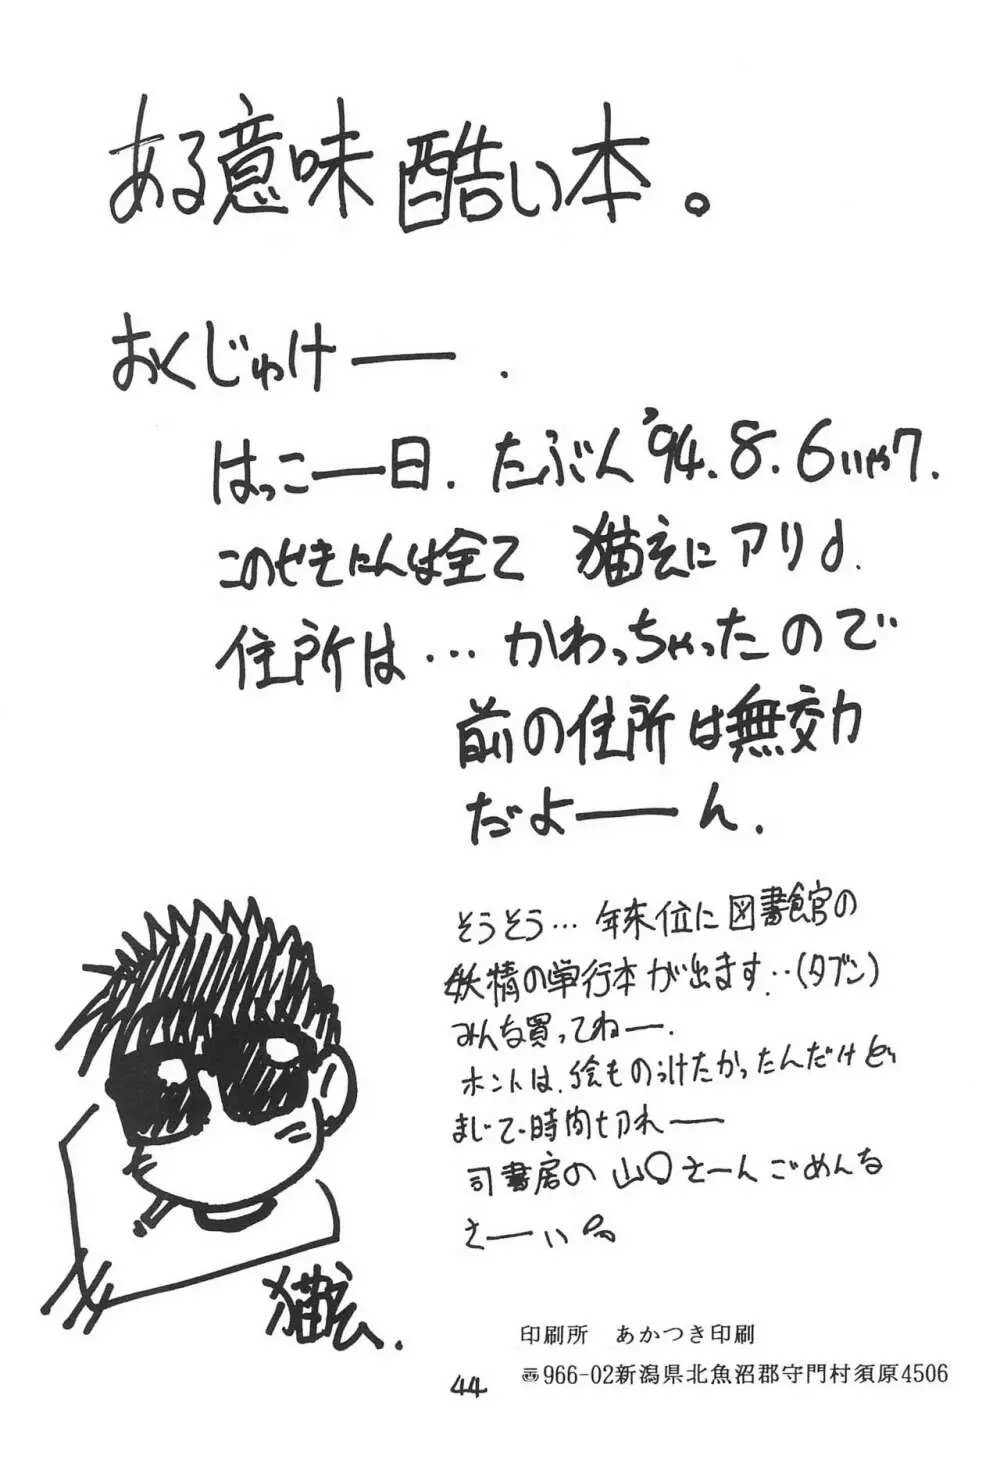 ある意味酷い本。
おくじゅけー.
はっこー日. たぶん'94.8.6いや7.
このせきにんは全て 猫玄にアリ♪.
住所は…かわっちゃったので
前の住所は無交力
だよーん.
そうそう…年末位に図書館の
妖精の単行本が出ます..(タブン)
みんな買ってねー.
ホントは、絵ものっけたかったんだけどぃ
まじで時間切れー
司書房の山○さーんごめんな
さーい
猫玄.
印刷所 あかつき印刷
966-02新潟県北魚沼郡守門村須原4506
44